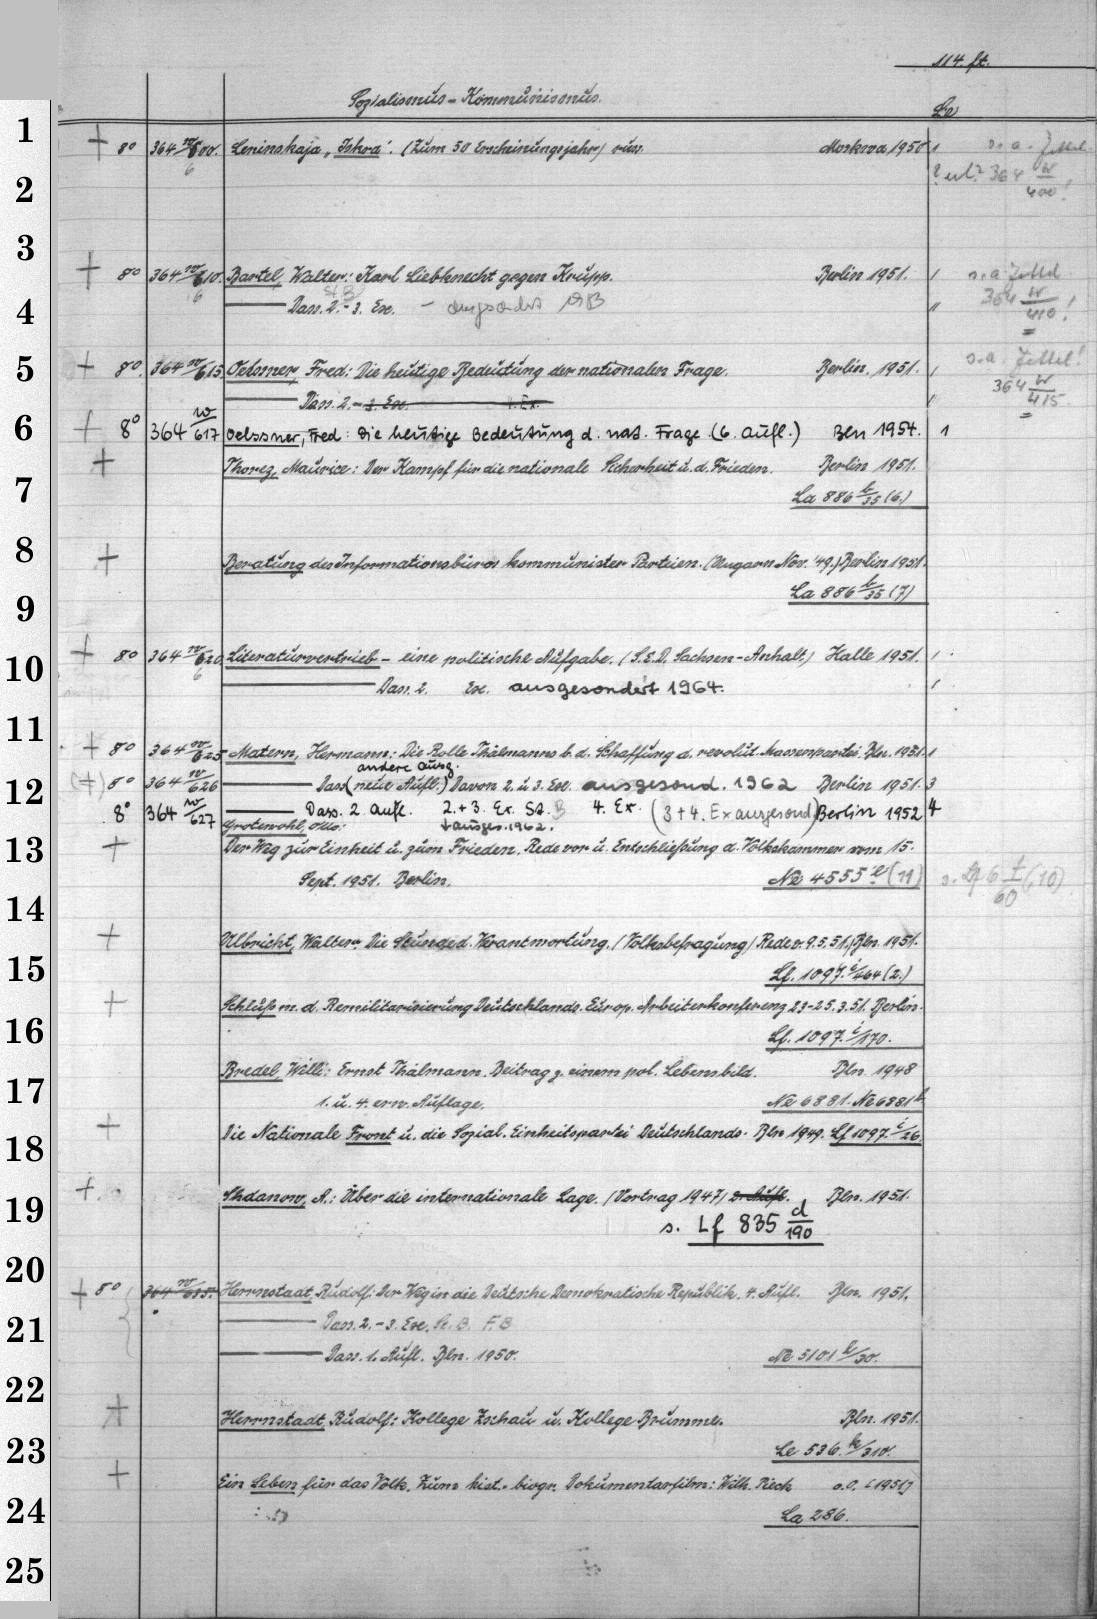 114. ft.
Sozialismus - Kommunismus.
Le
1
+ 8° 364 w/600. Leninskaja „Iskra". (Zum 50 Erscheinungsjahr) russ. Moskova 1950 1 s. a. Zettel
6 364 w/400!
2
3
+ 8° 364 w/610. Bartel, Walter: Karl Liebknecht gegen Krupp. Berlin 1951. 1 s. a. Zettel
6 Dass. 2.-3. Ex. - ausgesondert 364 w/410!
4
5
+ 8° 364 w/615 Oelssner, Fred: Die heutige Bedeutung der nationalen Frage. Berlin. 1951. 1 s. a. Zettel!
Dass. 2.- 3. Ex. 364 w/415
6
+ 8° 364 w/617 Oelssner, Fred: Die heutige Bedeutung d. nat. Frage (6. Aufl.) Bln 1954. 1
+ Thorez, Maurice: Der Kampf für die nationale Sicherheit u. d. Frieden. Berlin 1951.
7
La 886 b/35 (6.)
8
+ Beratung des Informationsbüros kommunister Parteien. (Ungarn Nov. '49.) Berlin 1951.
9
La 886 b/35 (7)
10
+ 8° 364 w/620 Literaturvertrieb - eine politische Aufgabe. (S.E.D. Sachsen-Anhalt.) Halle 1951. 1
6 Dass. 2. Ex. ausgesondert 1964. 1
11
+ 8° 364 w/625 Matern, Hermann: Die Rolle Thälmanns b. d. Schaffung d. revolut. Massenpartei. Bln. 1951. 1
andere Ausg.
12
(+) 8° 364 w/626 Dass (neue Aufl.) Davon 2. u 3. Ex. ausgesond. 1962 Berlin 1951. 3
8° 364 w/627 Dass. 2 Aufl. 2.+3. Ex. St. B 4. Ex. (3+4. Ex ausgesond) Berlin 1952 4
Grotewohl, Otto: + ausges. 1962.
13
+ Der Weg zur Einheit u. zum Frieden. Rede vor u. Entschließung d. Volkskammer vom 15.
Sept. 1951. Berlin. Ne 4555 e (11)
14
+ Ulbricht, Walter: Die Stunde d. Verantwortung. (Volksbefragung) Rede v. 9.5.51.) Bln. 1951.
15
Lf. 1097. i/464 (2.)
+ Schluß m. d. Remilitarisierung Deutschlands. Europ. Arbeiterkonferenz 23-25.3.51. Berlin.
16
Lf. 1097. i/170.
Bredel, Willi: Ernst Thälmann. Beitrag z. einem pol. Lebensbild. Bln. 1948
17
1. u. 4. erw. Auflage. Ne 6881. Ne 6881
+ Die Nationale Front u. die Sozial. Einheitspartei Deutschlands. Bln 1949. Lf 1097. i/26.
18
+ Shdanow, A.: Über die internationale Lage. (Vortrag 1947) 2. Aufl. Bln. 1951.
19
s. Lf 835 d/190
20
+ 8° 364 w/635. Herrnstadt, Rudolf: Der Weg in die Deutsche Demokratische Republik. 4. Aufl. Bln. 1951.
21
Dass. 2.-3. Exe. St. B. F. B
Dass. 1. Aufl. Bln. 1950. Ne 5101 k/30.
22
+ Herrnstadt, Rudolf: Kollege Zschau u. Kollege Brumme. Bln. 1951.
23
Le 536. k/310.
+ Ein Leben für das Volk. Zum hist.- biogr. Dokumentarfilm: Wilh. Pieck o.O. [1951]
24
La 286.
25